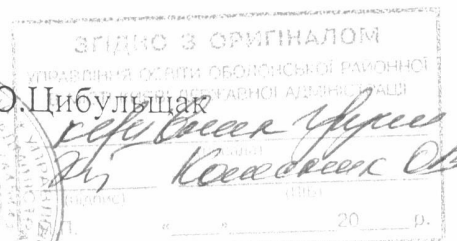 ЗГІДНО З ОРИГІНАЛОМ
УПРАВЛІННЯ ОСВІТИ ОБОЛОНСЬКОЇ РАЙОННОЇ
ДЕРЖАВНОЇ АДМІНІСТРАЦІЇ
О.Цибульщак
керівник групи
(підпис) (ПІБ)
П. "___" ______ 20___р.